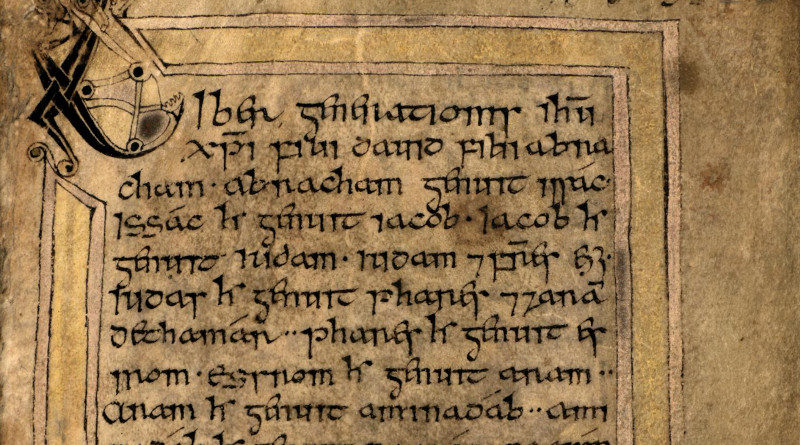 Liber generationis ihū
xp̄i filii dauid filii abra
cham · abracham genuit issac·
issac hr genuit iacob · iacob hr
genuit · iudam · iudam ⁊ fr̄es eiꝫ·
iudas hr genuit phares ⁊ zarā
dethamar ·· phares hr genuit es
rom · esrom hr genuit aram ··
aram hr genuit aminadab ·· ami